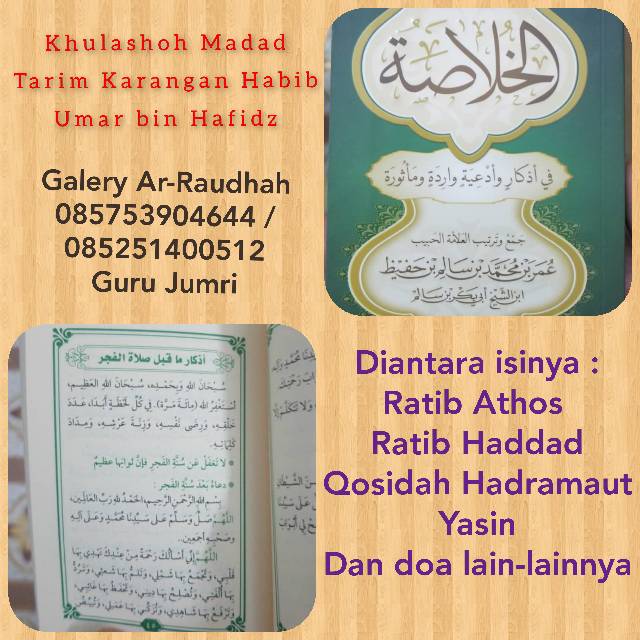 Khulashoh Madad
Tarim Karangan Habib
Umar bin Hafidz
Galery Ar-Raudhah
085753904644 /
085251400512
Guru Jumri
الخلاصة
في أذكار وأدعية واردة ومأثورة
جمع وترتيب العلامة الحبيب
عمر بن محمد بن سالم بن حفيظ
ابن الشيخ أبي بكر بن سالم
أذكار ما قبل صلاة الفجر
سُبْحَانَ اللهِ وَبِحَمْدِهِ، سُبْحَانَ اللهِ العَظِيمِ،
أَسْتَغْفِرُ اللهَ (مِائَةَ مَرَّة). فِي كُلِّ لَحْظَةٍ أَبَدًا، عَدَدَ
خَلْقِهِ، وَرِضَى نَفْسِهِ، وَزِنَةَ عَرْشِهِ، وَمِدَادَ
كَلِمَاتِهِ.
لا تَغْفَلْ عَنْ سُنَّةِ الفَجرِ فإنَّ ثوابَها عظيمٌ
دعاءُ بَعْدَ سُنَّةِ الفَجر :
بِسْمِ اللهِ الرَّحْمَنِ الرَّحِيمِ، الحَمْدُ للهِ رَبِّ العَالَمِينَ،
اللَّهُمَّ صَلِّ وَسَلِّمْ عَلَى سَيِّدِنَا مُحَمَّدٍ وَعَلَى آلِهِ
وَصَحْبِهِ أَجْمَعِين.
اللَّهُمَّ إِنِّي أَسْأَلُكَ رَحْمَةً مِنْ عِنْدِكَ تَهْدِي بِهَا
قَلْبِي، وَتَجْمَعُ بِهَا شَمْلِي، وَتَلُمُّ بِهَا شَعْثِي، وَتَرُدُّ
بِهَا أُلْفَتِي، وَتُصْلِحُ بِهَا دِينِي، وَتَحْفَظُ بِهَا غَائِبِي،
وَتَرْفَعُ بِهَا شَاهِدِي، وَتُزَكِّي بِهَا عَمَلِي، وَتُبَيِّضُ
Diantara isinya :
Ratib Athos
Ratib Haddad
Qosidah Hadramaut
Yasin
Dan doa lain-lainnya